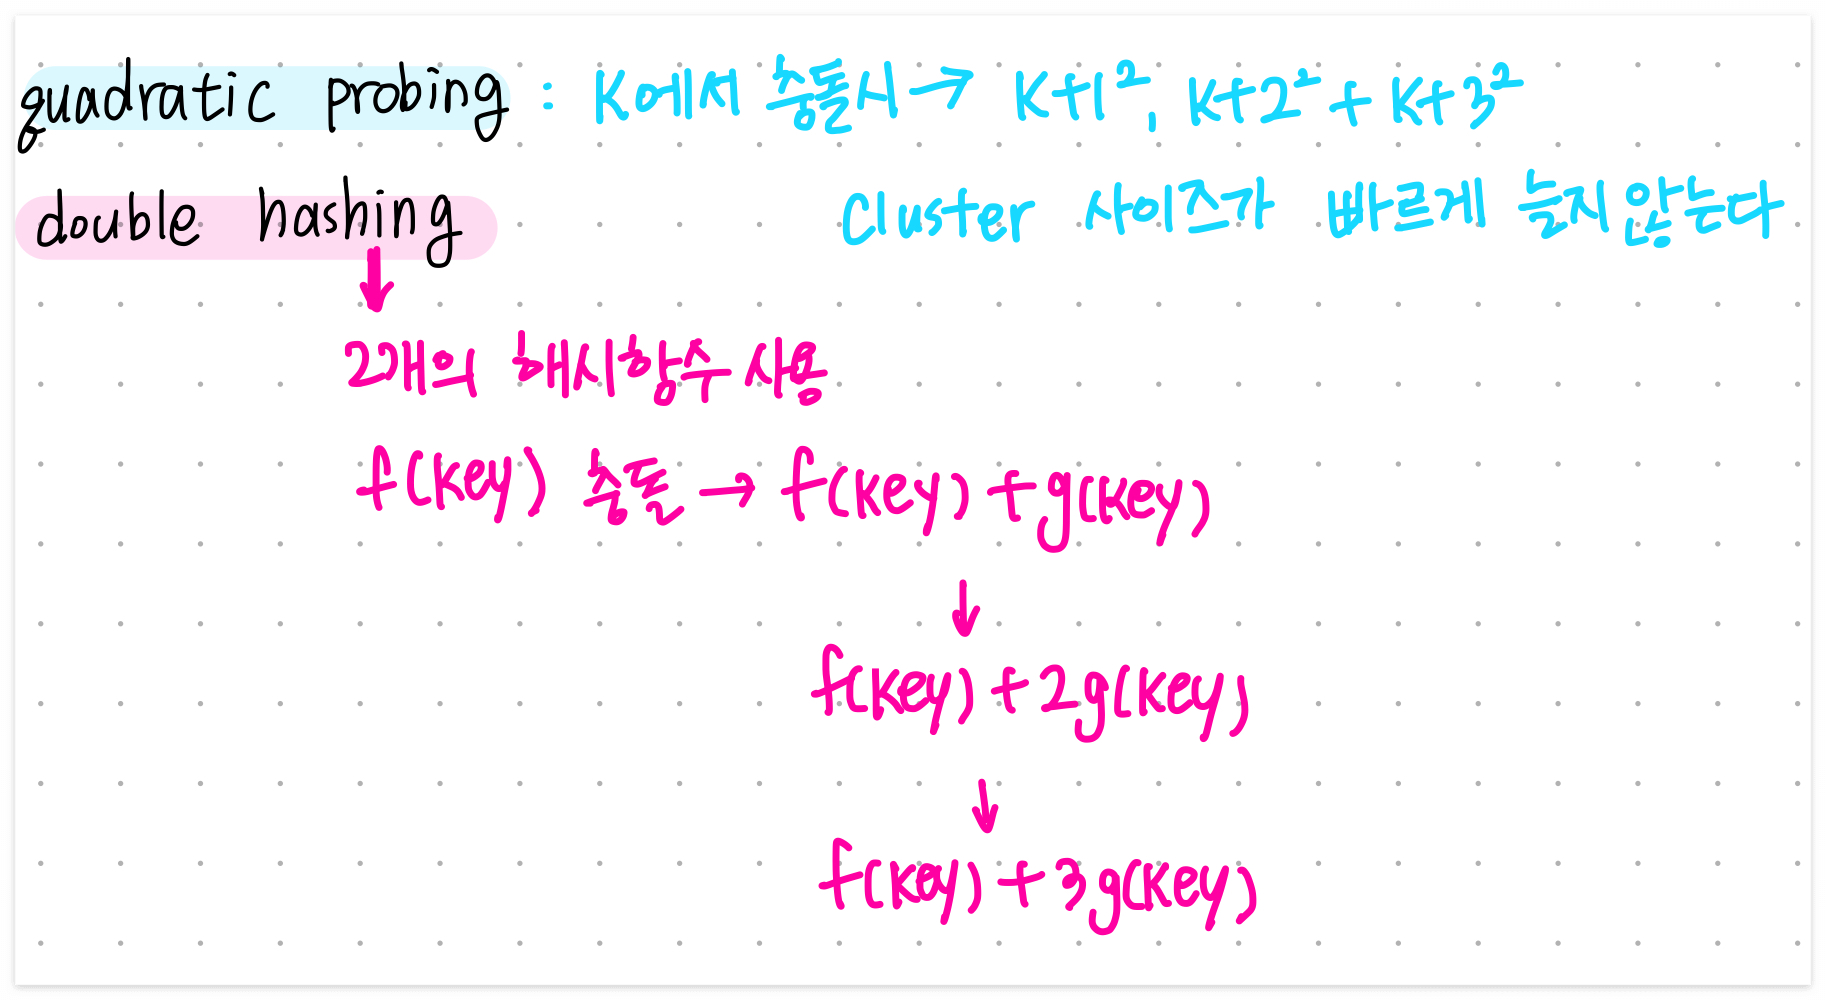 quadratic probing : K에서 충돌시 → K+1², K+2² + K+3²
Cluster 사이즈가 빠르게 늘지 않는다
double hashing
↓
2개의 해시함수 사용
f(key) 충돌 → f(key) + g(key)
↓
f(key) + 2g(key)
↓
f(key) + 3g(key)